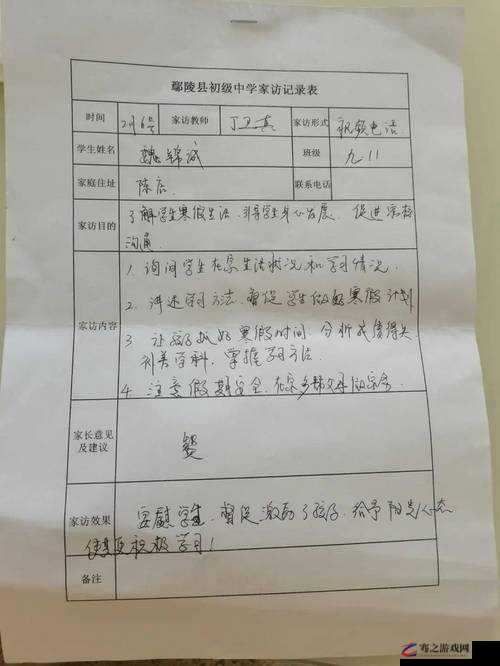 鄢陵县初级中学家访记录表
时间 2月6号 家访教师 丁卫真 家访形式 视频电话
学生姓名 魏锦诚 班级 九11
家庭住址 陈店 联系电话
家访目的 了解学生寒假生活、引导学生身心发展、促进家校
沟通
家访内容
1. 询问学生在家生活状况和学习情况.
2. 讲述学习方法、督促学生做好寒假计划
3. 让孩子抓好寒假时间、分析成绩得失
补差学科、掌握学习方法.
4. 注意假期安全、在家多帮父母做家务
家长意见
及建议
家访效果 安慰学生、督促激励了孩子、给予阳光心态
使其更积极学习!
备注
骞之游戏网